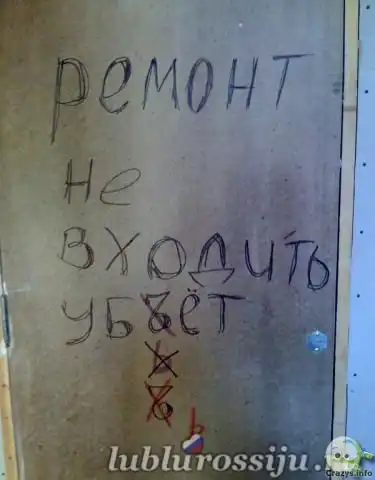 ремонт
не
входить
убъёт
ь
ъ
ь
lublurossiju.
Crazys.info